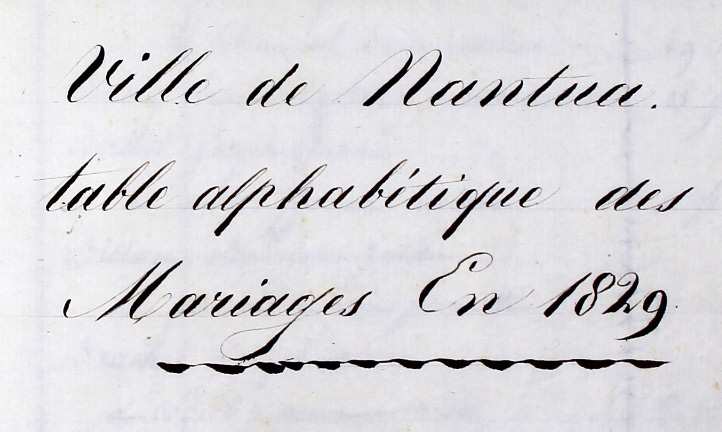 Ville de Nantua.
table alphabitique des
Mariages En 1829